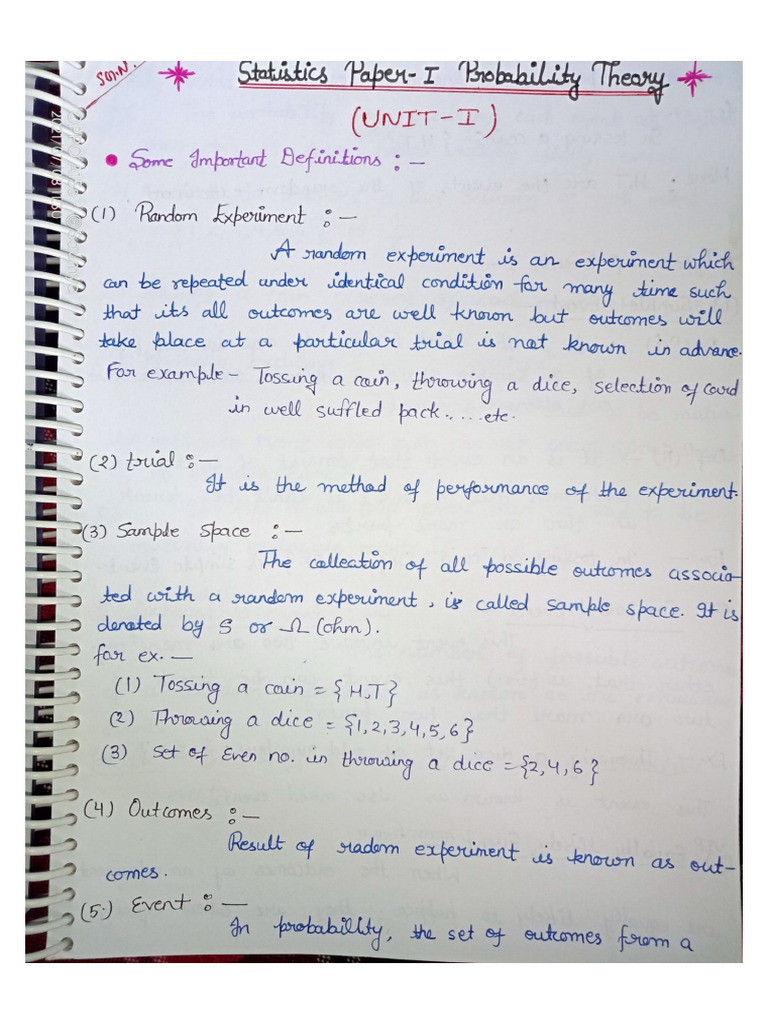 SOM.N.
Statistics Paper-I Probability Theory
(UNIT-I)
Some Important Definitions :-
(1) Random Experiment :-
A random experiment is an experiment which
can be repeated under identical condition for many time such
that its all outcomes are well known but outcomes will
take place at a particular trial is not known in advance.
For example - Tossing a coin, throwing a dice, selection of card
in well suffled pack.....etc.
(2) trial :-
It is the method of performance of the experiment.
(3) Sample space :-
The collection of all possible outcomes associa-
ted with a random experiment, is called sample space. It is
denoted by S or Ω (ohm).
for ex. -
(1) Tossing a coin = {H,T}
(2) Throwing a dice = {1,2,3,4,5,6}
(3) set of Even no. in throwing a dice = {2,4,6}
(4) Outcomes :-
Result of radom experiment is known as out-
comes.
(5.) Event :-
In probability, the set of outcomes from a